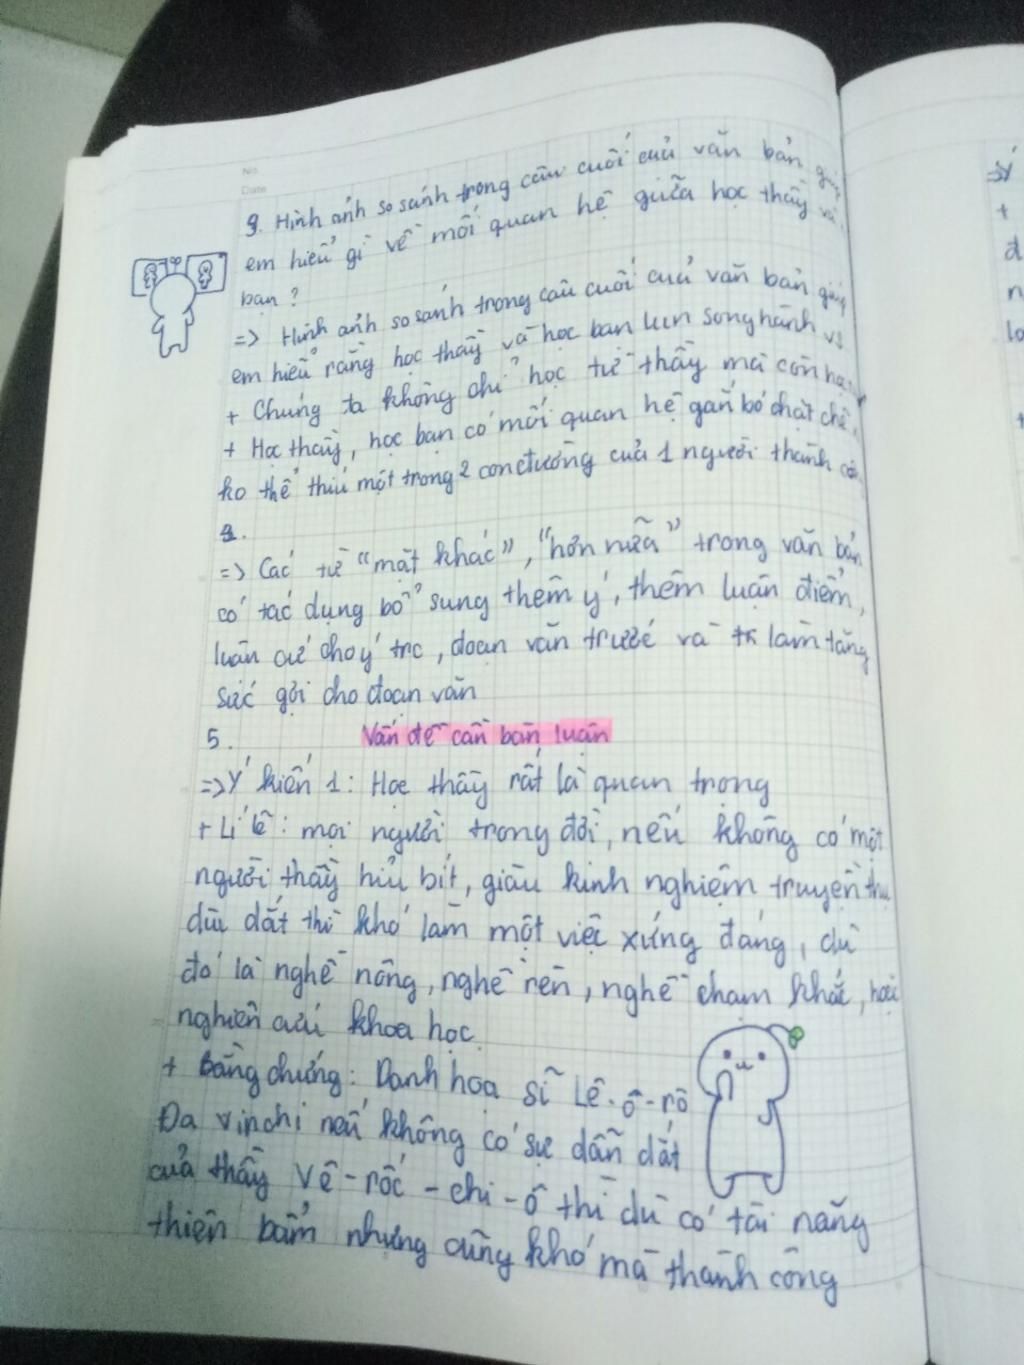 No.
Date
3. Hình ảnh so sánh trong câu cuối của văn bản giúp
em hiểu gì về mối quan hệ giữa học thầy và
bạn ?
=> Hình ảnh so sánh trong câu cuối của văn bản giúp
em hiểu rằng học thầy và học bạn lun song hành vs
+ Chúng ta không chỉ học từ thầy mà còn
+ Học thầy, học bạn có mối quan hệ gắn bó chặt chẽ,
ko thể thiú một trong 2 con đường của 1 người thành
4.
=> Các từ "mặt khác", "hơn nữa" trong văn bản
có tác dụng bổ sung thêm ý, thêm luận điểm,
luận cứ cho ý trc, đoạn văn trước và làm tăng
sức gợi cho đoạn văn
5. Vấn đề cần bàn luận
=> Ý kiến 1: Học thầy rất là quan trọng
+ Lí lẽ: mọi người trong đời, nếu không có một
người thầy hiủ bít, giàu kinh nghiệm truyền thụ
dùi dắt thì khó làm một việc xứng đáng, dù
đó là nghề nông, nghề rèn, nghề chạm khắc, hoặc
nghiên cứu khoa học.
+ Bằng chứng: Danh họa sĩ Lê-ô-rô
Đa vinchi nếu không có sự dẫn dắt
của thầy Vê-rốc-chi-ô thì dù có tài năng
thiên bẩm nhưng cũng khó mà thành công